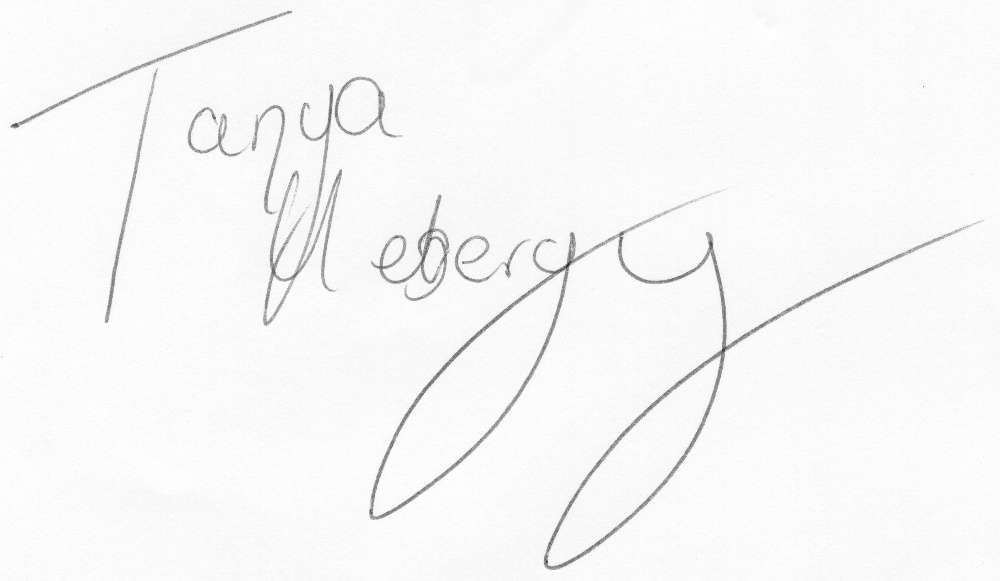 Tanya
Mebergy